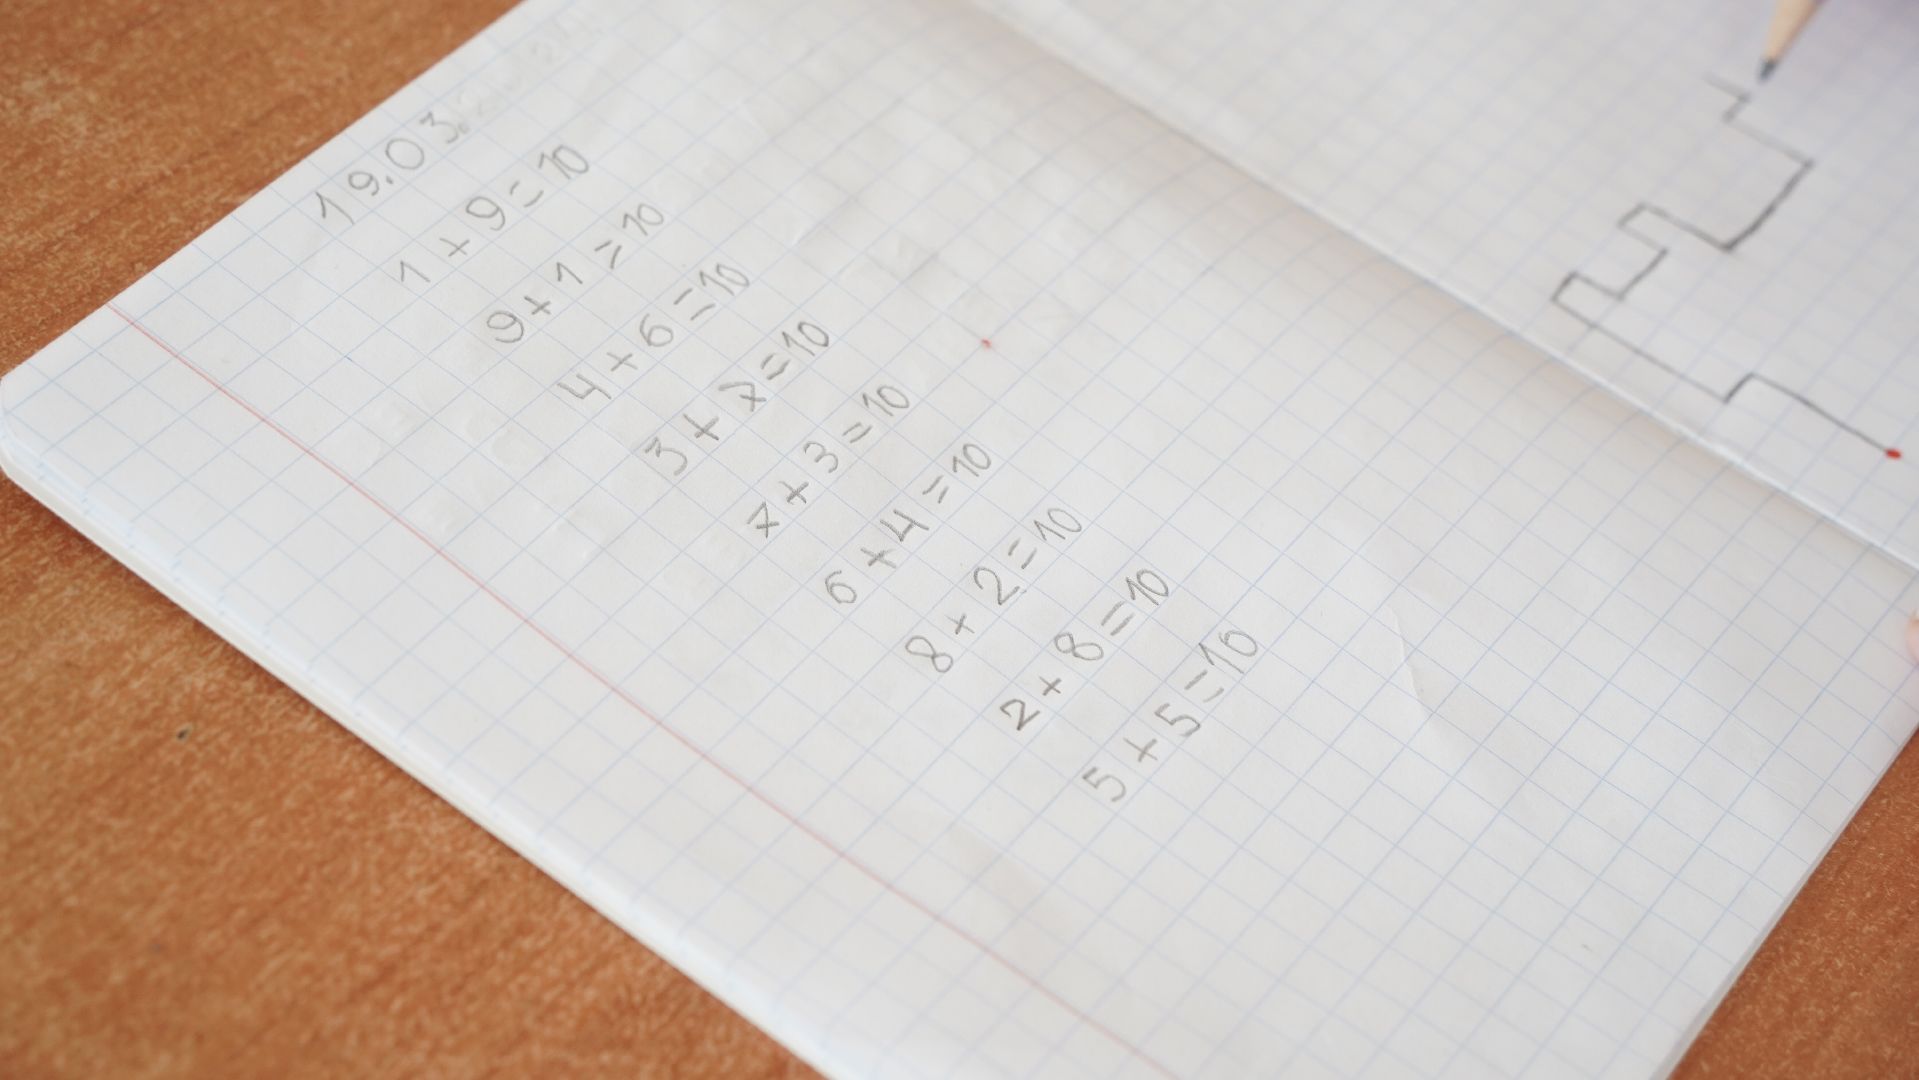 19.03.
1 + 9 = 10
9 + 1 = 10
4 + 6 = 10
3 + 7 = 10
7 + 3 = 10
6 + 4 = 10
8 + 2 = 10
2 + 8 = 10
5 + 5 = 10